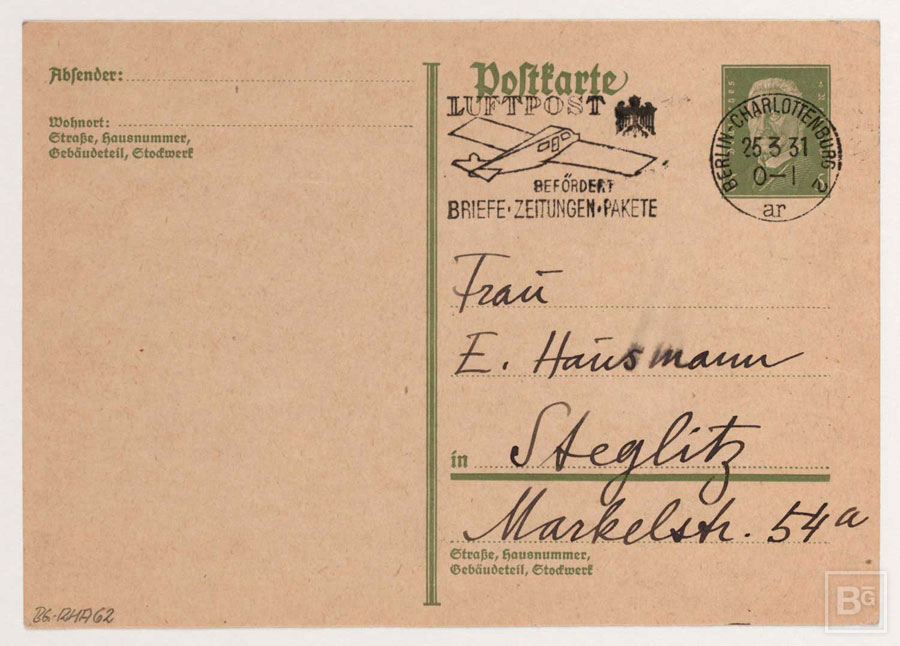 Absender:
Wohnort:
Straße, Hausnummer,
Gebäudeteil, Stockwerk
Postkarte
LUFTPOST
BEFÖRDERT
BRIEFE·ZEITUNGEN·PAKETE
BERLIN-CHARLOTTENBURG 2
25 3 31
0–1
ar
Frau
E. Hausmann
in Steglitz
Markelstr. 54a
Straße, Hausnummer,
Gebäudeteil, Stockwerk
BG-RHA62
BG